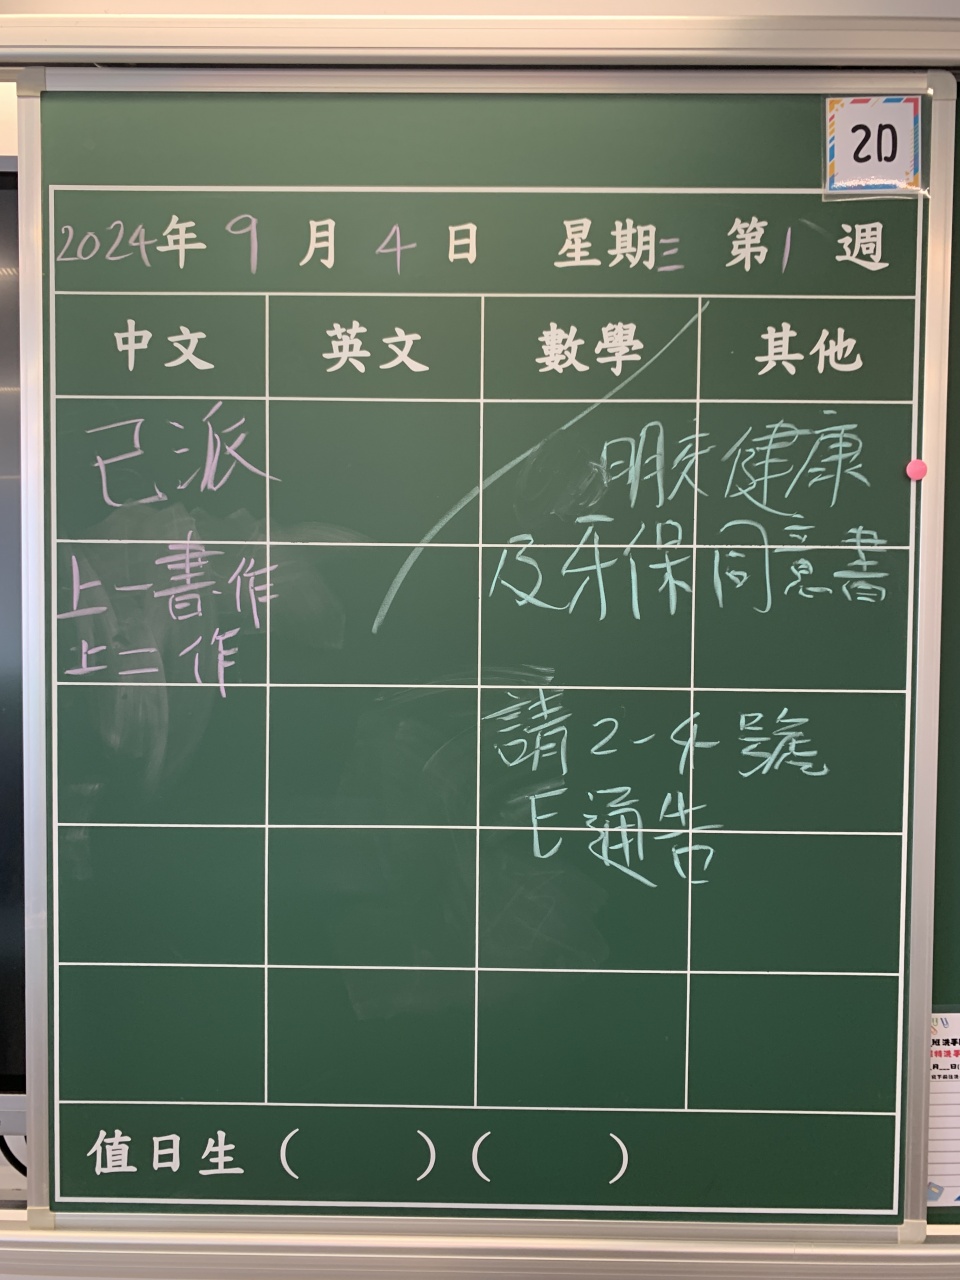 2D
2024年9月4日 星期三 第1週
中文 英文 數學 其他
已派
明天健康
及牙保同意書
上一書.作
上二 作
請2-4號
E通告
值日生( )( )